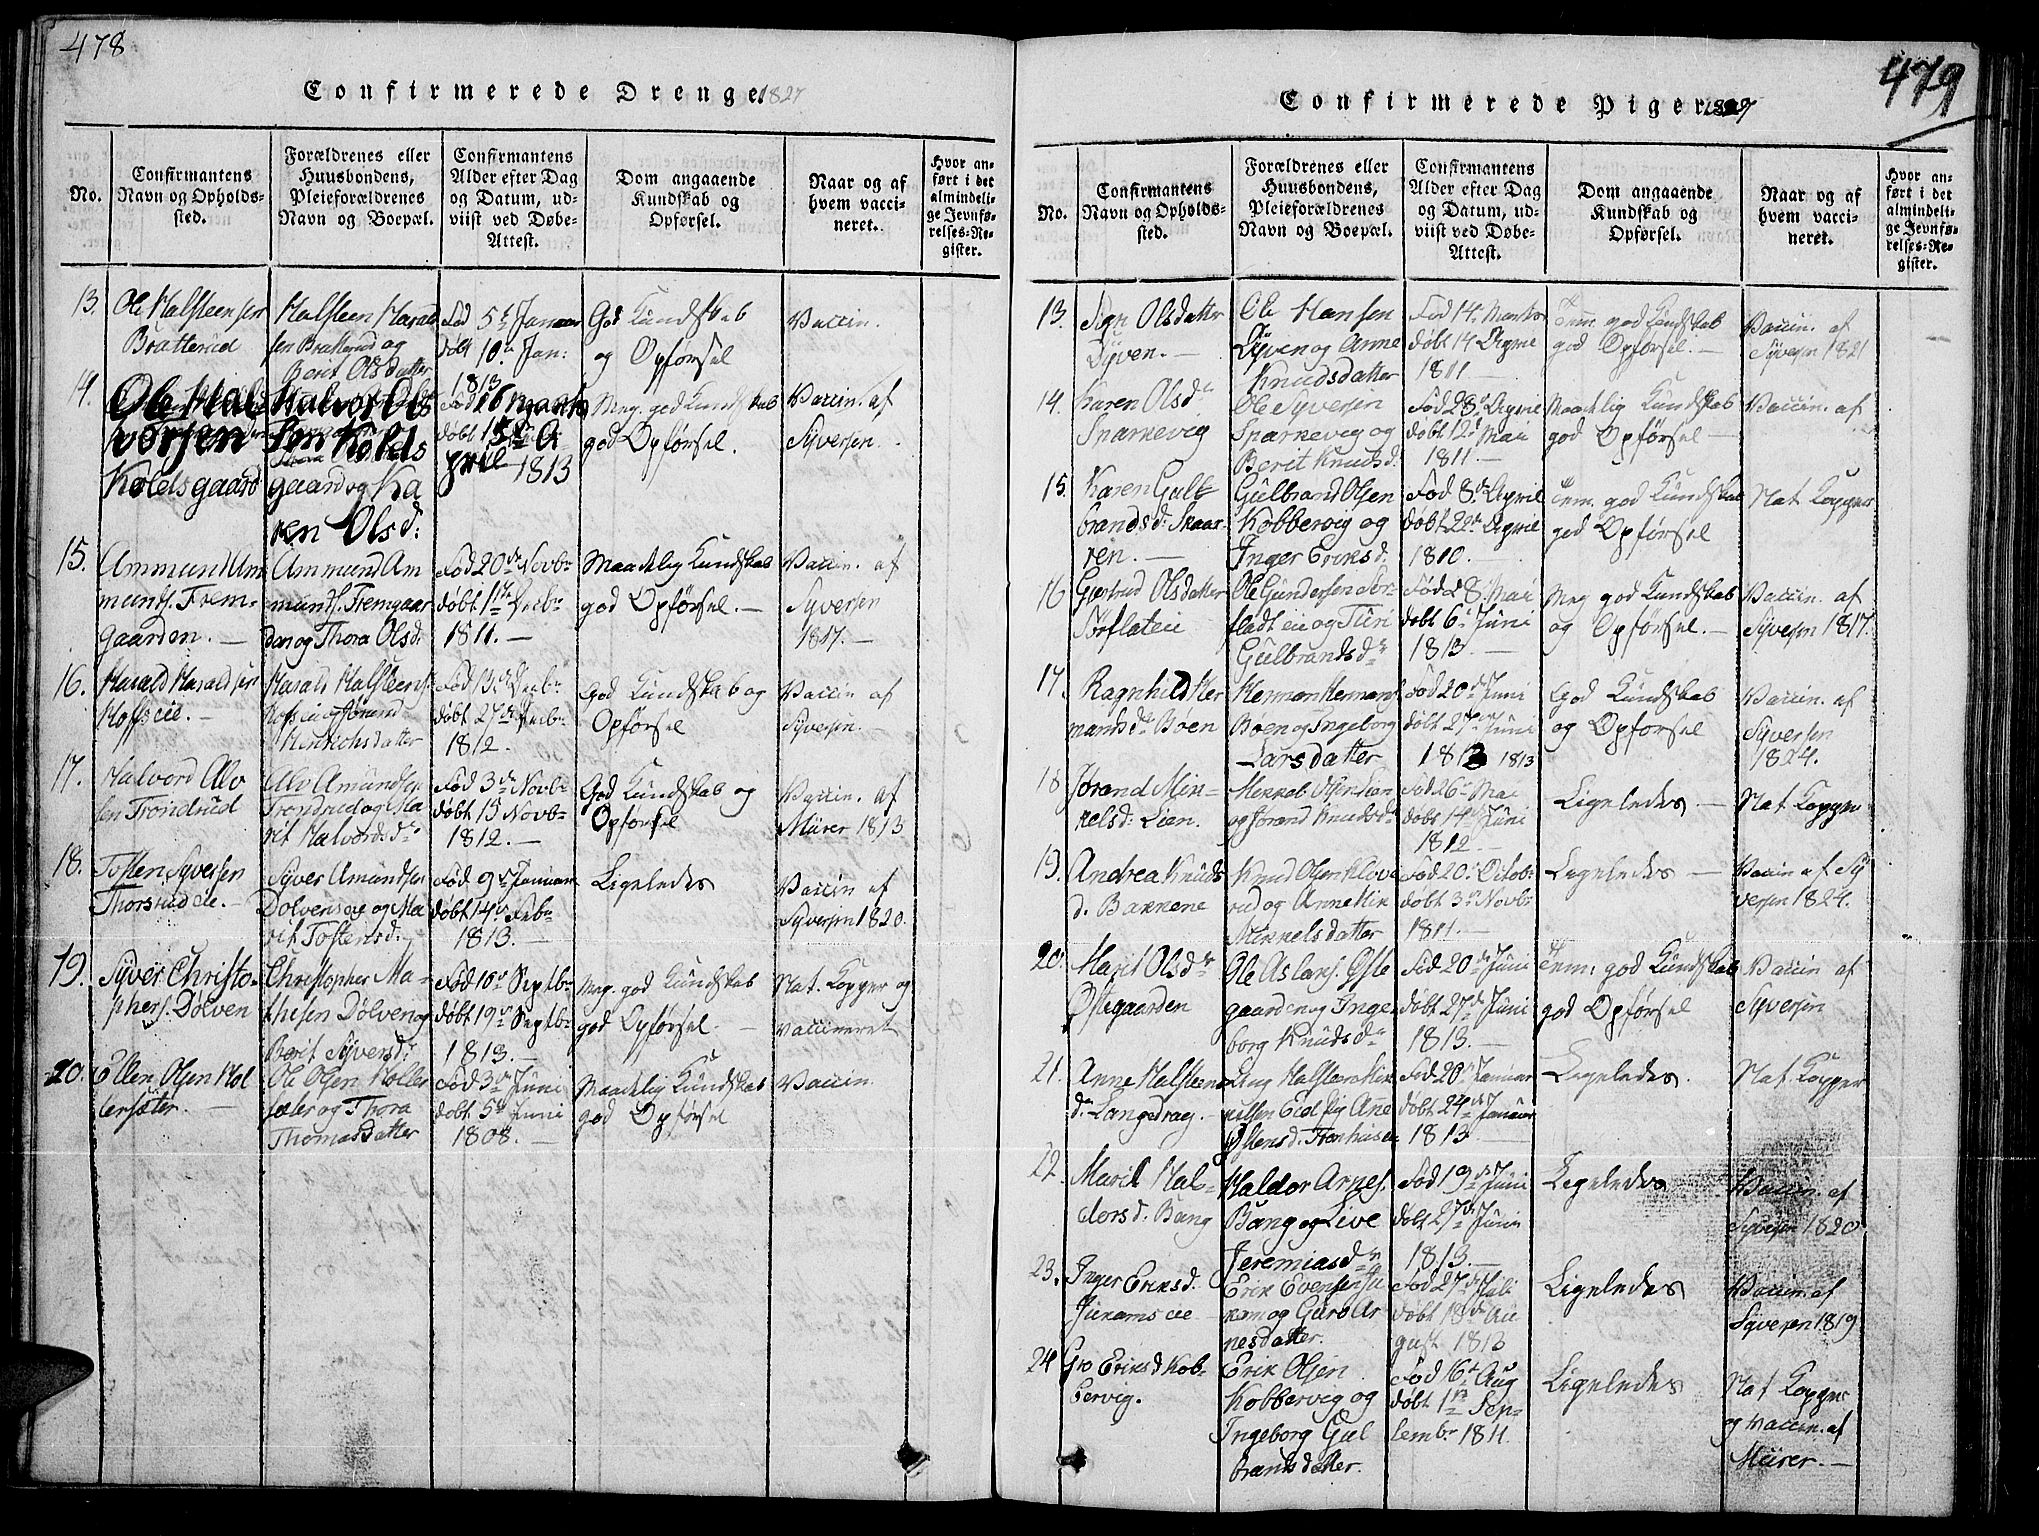 478
Confirmerede Drenge 1827
No.
Confirmantens
Navn og Opholds-
sted.
Forældrenes eller
Huusbondens,
Pleieforældrenes
Navn og Boepæl.
Confirmantens
Alder efter Dag
og Datum, ud-
viist ved Døbe-
Attest.
Dom angaaende
Kundskab og
Opførsel.
Naar og af
hvem vacci-
neret.
Hvor an-
ført i det
almindeli-
ge Jevnfø-
relses-Re-
gister.
13.
Ole Halsteensen
Bratterud
Halsteen Harald
sen Bratterud og
Berit Olsdatter
Fød 5te Januar
døbt 10de Jan:
1813
God Kundskab
og Opførsel
Vaccin.
14.
Ole Hal
vorsen
Koldsgaard
Halvor Ol
sen Kolds
gaard og Ka
ren Olsd:
Fød 16 Marts
døbt 15de A
pril 1813
Meg. god Kundskab
god Opførsel.
Vaccin. af
Syversen.
15.
Ammund Am
munds. Frem-
gaarden. —
Ammund Am
munds. Fremgaar
den og Thora Olsd:
Fød 20de Novbr
døbt 1ste Decbr
1811. —
Maadelig Kundskab
god Opførsel. —
Vaccin. af
Syversen
1817. —
16.
Harald Haraldsen
Hoffseie. —
Harald Halsteens.
Hofseie og Jørand
Henrichsdatter
Fød 13de Decbr
døbt 27de Decbr
1812.
God Kundskab og
Opførsel
Vaccin af
Syversen.
17.
Halvord Alv
sen Trondrud
Alv Amundsen
Trondrud og Ma
rit Halvordsdr
Fød 3de Novbr
døbt 15 Novbr
1812. —
God Kundskab og
Opførsel
Vaccin. af
Mürer 1813
18.
Tosten Syversen
Thorsrudeie. —
Syver Amundsen
Dølvenseie og Ma
rit Tostensd.
Fød 9de Januar
døbt 14de Feb
1813. —
Ligeledes
Vaccin af
Syversen 1820.
19.
Syver Christo-
phers. Dølven
Christopher Ma-
thesen Dølven og
Berit Syversd:
Fød 10de Septbr
døbt 19de Septbr
1813. —
Meg. god Kundskab
god Opførsel. —
Nat. Kopper og
vaccineret
20.
Ellen Olsen Hol
lersæter. —
Ole Olsen Holler
sæter og Thora
Thomasdatter
Fød 3de Juni
døbt 5te Juni
1808. —
Maadelig Kundskab
god Opførsel
Vaccin.
479
Confirmerede Piger 1827
No.
Confirmantens
Navn og Opholds-
sted.
Forældrenes eller
Huusbondens,
Pleieforældrenes
Navn og Boepæl.
Confirmantens
Alder efter Dag
og Datum, ud-
viist ved Døbe-
Attest.
Dom angaaende
Kundskab og
Opførsel.
Naar og af
hvem vacci-
neret.
Hvor an-
ført i det
almindeli-
ge Jevnfø-
relses-Re-
gister.
13.
Sigri Olsdatter
Dyven. —
Ole Hansen
Dyven og Anne
Knudsdatter
Fød 14de Martz
døbt 14 April
1811 —
Tem. god Kundskab
god Opførsel. —
Vaccin. af
Syversen 1821
14.
Karen Olsdr
Sparkevig
Ole Syversen
Sparkevig og
Berit Knudsd:
Fød 28de April
døbt 12te Mai
1811. —
Maadelig Kundskab
god Opførsel —
Vaccin. af
15.
Karen Gul
brandsd:
ren. —
Gulbrand Olsen
Kobbervig og
Inger Eriksd:
Fød 8de April
døbt 22de April
1810. —
Tem. god Kundskab
god Opførsel
Nat Kopper
16
Giertrud Olsdatter
Sørflateie
Ole Gundersen Sør
fladteie og Turi
Gulbrandsdr
Fød 28. Mai
døbt 6te Juni
1813. —
Meg god Kundskab
og Opførsel. —
Vaccin. af
Syversen 1817.
17.
Ragnhild Her
mandsdr Boen
Herman Hermans.
Boen og Ingeborg
Larsdatter
Fød 20de Juni
døbt 27de Juni
1813 1813
God Kundskab
og Opførsel
Vaccin. af
Syversen
1824.
18
Jørand Mik-
kelsd: Lien.
Mekkel Olsen Lien
og Jørand Knudsdr
Fød 26de Mai
døbt 14de Juni
1812
Ligeledes. —
Nat Kopper
19.
Andrea Knuds
d. Bakkene
Knud Olsen Klove
rud og Anne Mik
Mikkelsdatter
Fød 20. Octob.
døbt 3de Novbr
1811. —
Ligeledes —
Vaccin af Sy
versen 1824.
20.
Marit Olsdr
Østegaarden
Ole Aslaks. Øste
gaarden og Inge
borg Knudsdr
Fød 20de Juni
døbt 27de Juni
1813. —
Tem: god Kundskab
god Opførsel
Vaccin af
Syversen
21.
Anne Halsteens
dr Langedrag.
Fød 20de Januar
døbt 24de Januar
1813 —
Ligeledes.
Nat. Kopper
22.
Marit Hal-
dorsd. Bang
Haldor Arnes.
Bang og Live
Jeremiasdr
Fød 19de Juni
døbt 27de Juni
1813. —
Ligeledes
Vaccin. af
Syversen 1820
23.
Inger Eriksd.
Juramseie
Erik Evensen Ju
ram og Guro Ar
nesdatter.
Fød 27de Juli
døbt 18de Au
gust 1813
Ligeledes
Vaccin. af
Syversen 1819
24
Gro Eriksd Kob-
bervig.
Erik Olsen
Kobbervig og
Ingeborg Gul
brandsdatter.
Fød 6te Aug
døbt 1ste Sep-
tembr 1811.
Ligeledes
Nat Kopper
og vaccin. af
Mürer. —